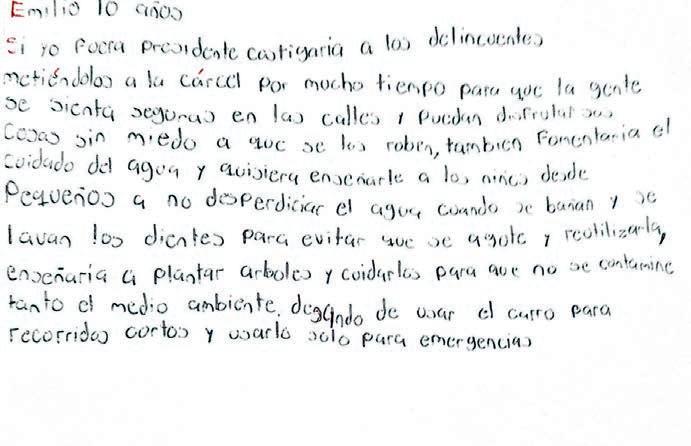 Emilio 10 años
Si yo Fuera Presidente castigaria a los delincuentes
metiéndolos a la cárcel por mucho tiempo para que la gente
se sienta seguras en las calles y puedan disfrutar sus
cosas sin miedo a que se los roben, tambien Fomentaria el
cuidado del agua y quisiera enseñarle a los niños desde
Pequeños a no desperdiciar el agua cuando se bañan y se
lavan los dientes para evitar que se agote y reutilizarla,
enseñaria a plantar arboles y cuidarlos para que no se contamine
tanto el medio ambiente. dejando de usar el carro para
recorridos cortos y usarlo solo para emergencias